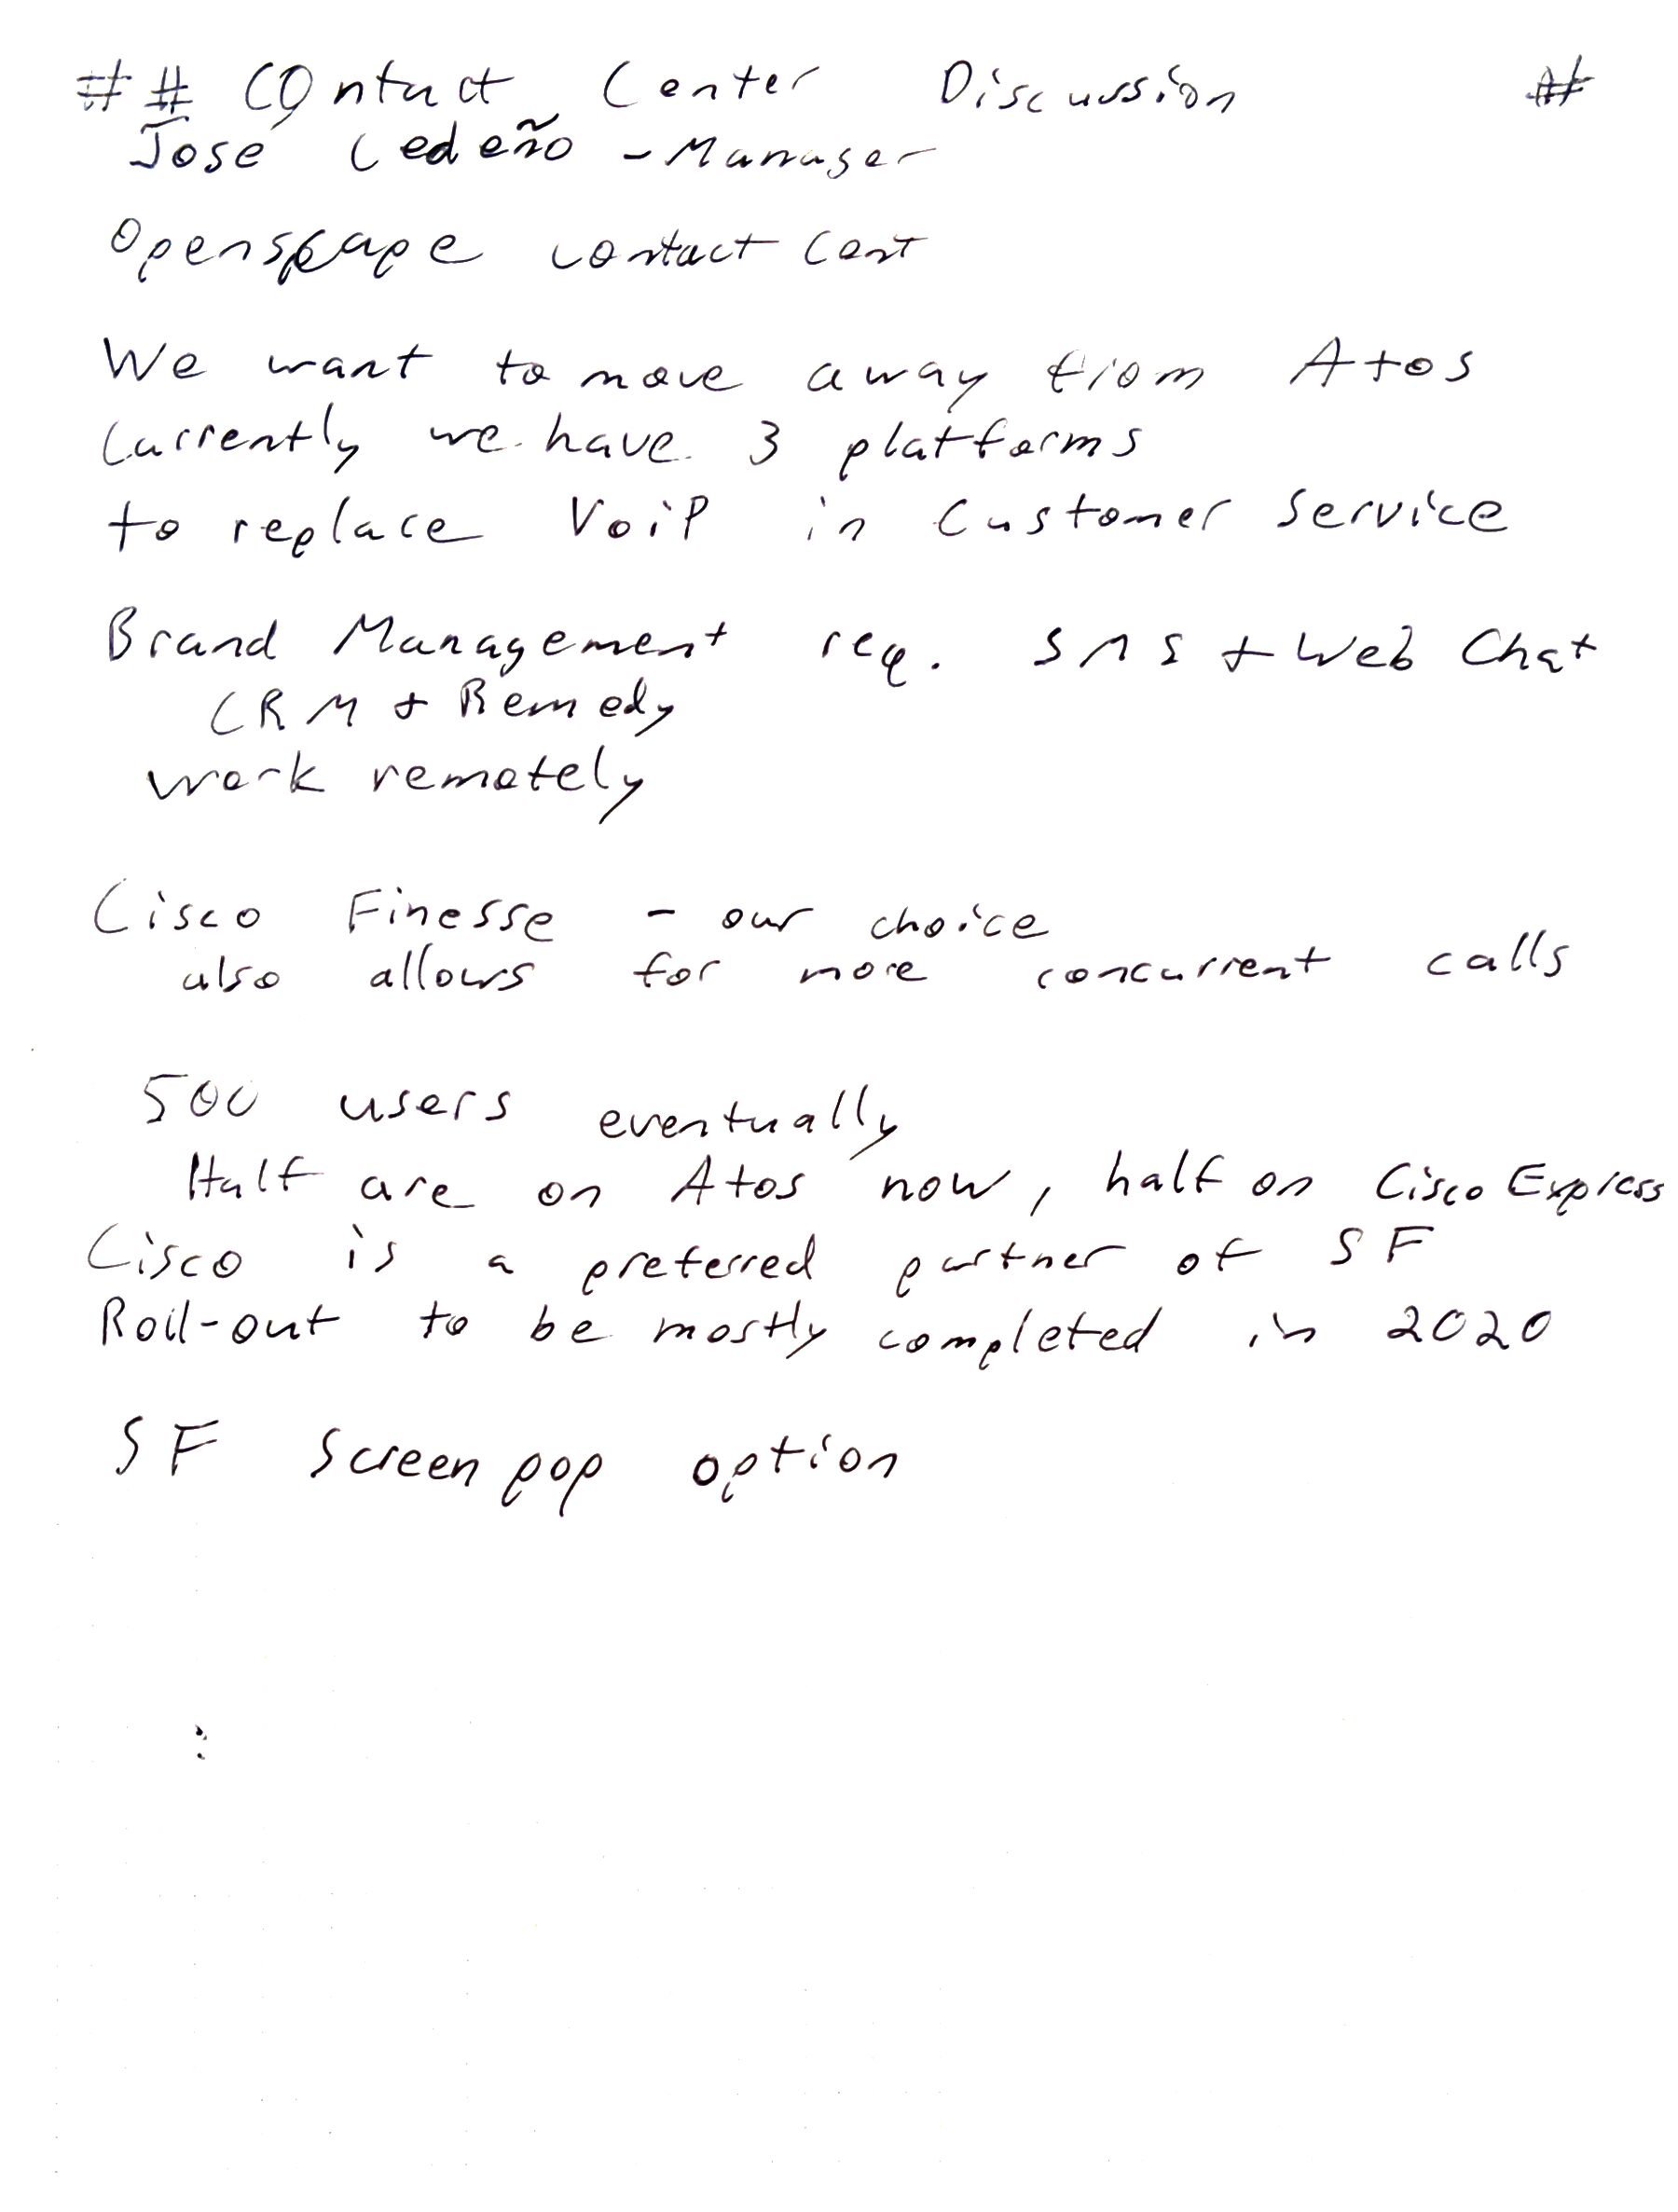 ## Contact Center Discussion #
José Cedeño - Manager
Openscape contact Cent
We want to move away from Atos
Currently we have 3 platforms
to replace VoiP in Customer Service
Brand Management req. SMS + Web Chat
CRM + Remedy
work remotely
Cisco Finesse - our choice
also allows for more concurrent calls
500 users eventually
Half are on Atos now, half on Cisco Express
Cisco is a preferred partner of SF
Roll-out to be mostly completed in 2020
SF Screen pop option